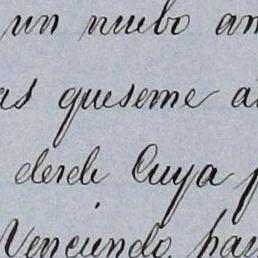 un nuebo an
as queseme a
desde Cuya p
Venciendo pau